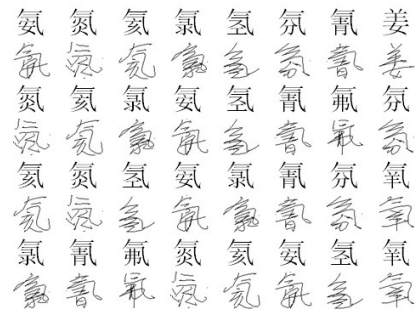 氨 氮 氦 氯 氢 氛 氰 姜
氨 氮 氦 氯 氢 氛 氰 姜
氮 氦 氯 氨 氢 氰 氟 氛
氮 氦 氯 氨 氢 氰 氟 氛
氦 氮 氢 氨 氯 氰 氛 氧
氦 氮 氢 氨 氯 氰 氛 氧
氯 氰 氟 氮 氦 氨 氢 氧
氯 氰 氟 氮 氦 氨 氢 氧